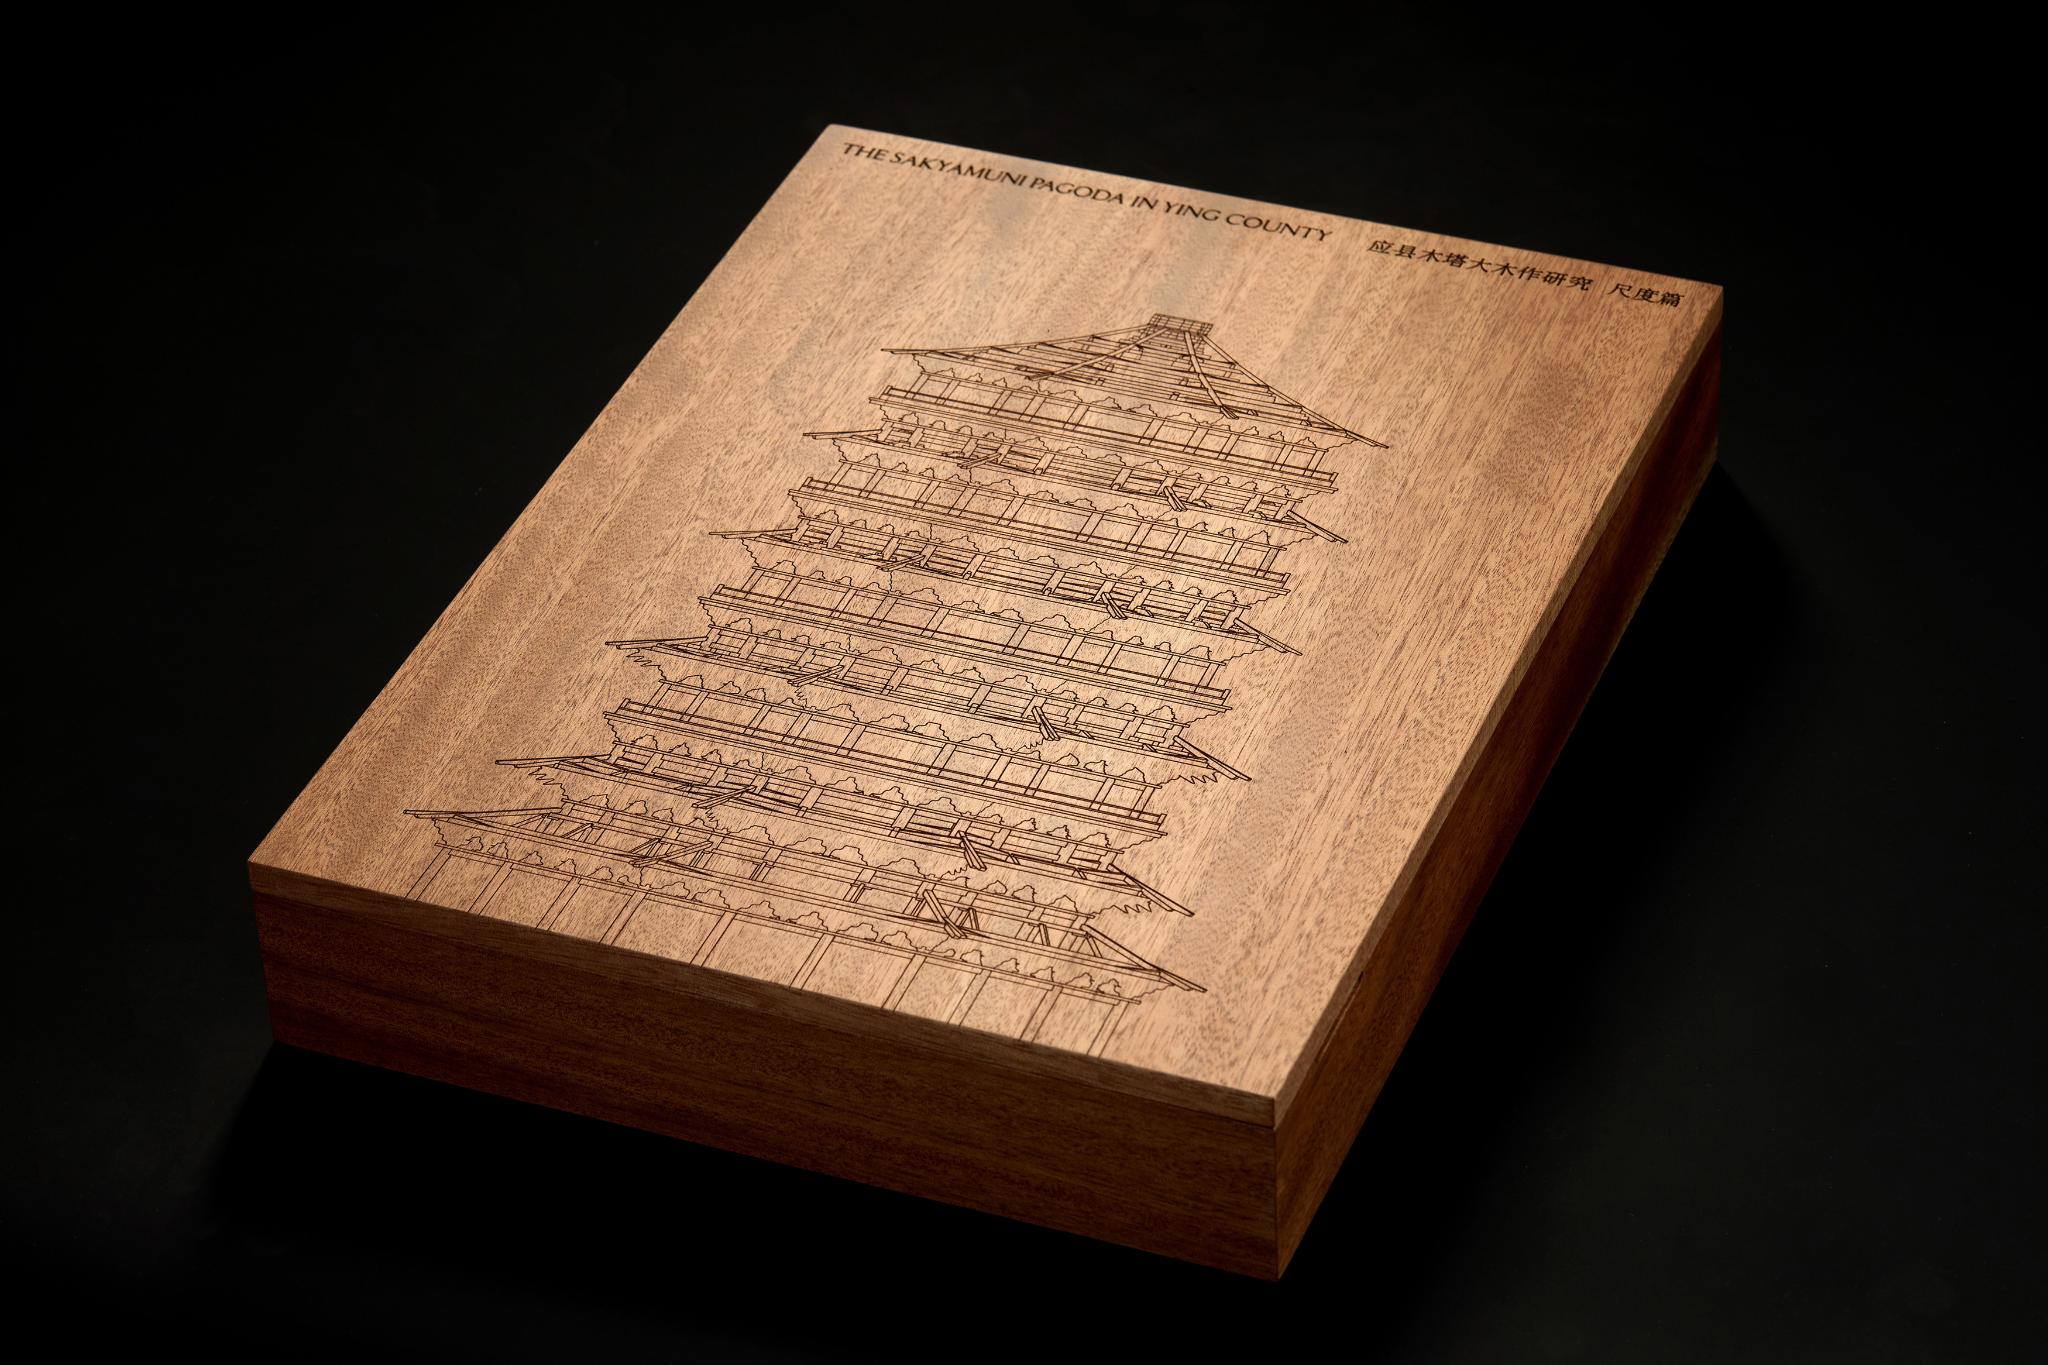 THE SAKYAMUNI PAGODA IN YING COUNTY 应县木塔大木作研究 尺度篇